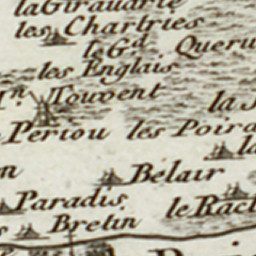 la Girauarie
les Chartries
le Gd Queru
les Englais
Mn Touvent
la
Periou les Poira
la
n Bélair
Paradis le Racl
Bretin